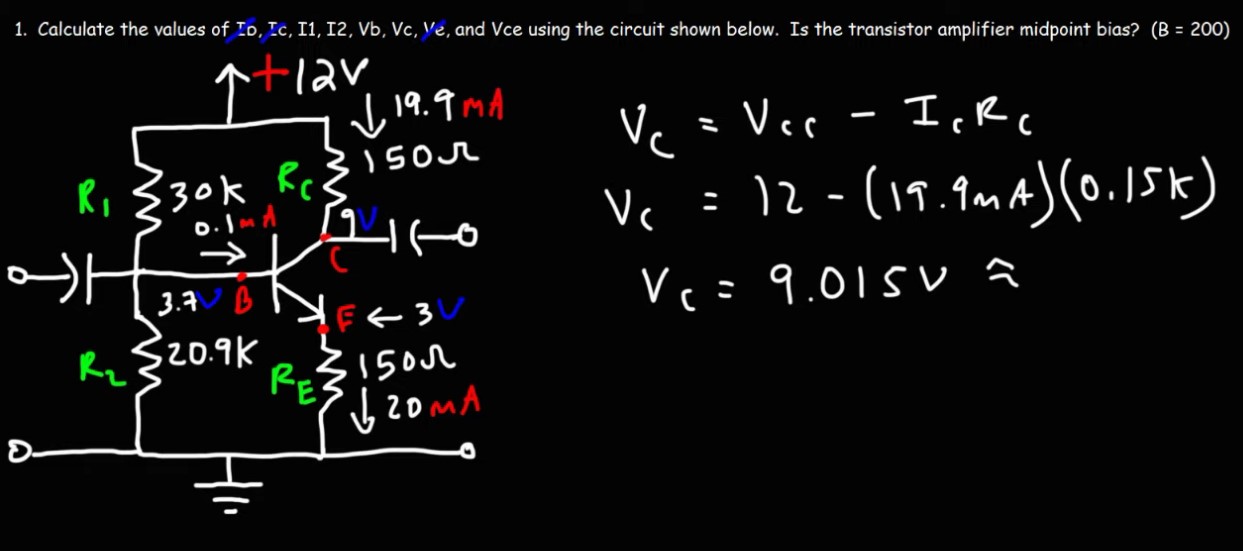 1. Calculate the values of Ib, Ic, I1, I2, Vb, Vc, Ve, and Vce using the circuit shown below. Is the transistor amplifier midpoint bias? (B = 200)
+12V
19.9 mA
150Ω
R1
30k
RC
0.1mA
9V
C
3.7V B
E ← 3V
R2
20.9K
RE
150Ω
20mA
Vc = Vcc - IcRc
Vc = 12 - (19.9mA)(0.15K)
Vc = 9.015V ≈